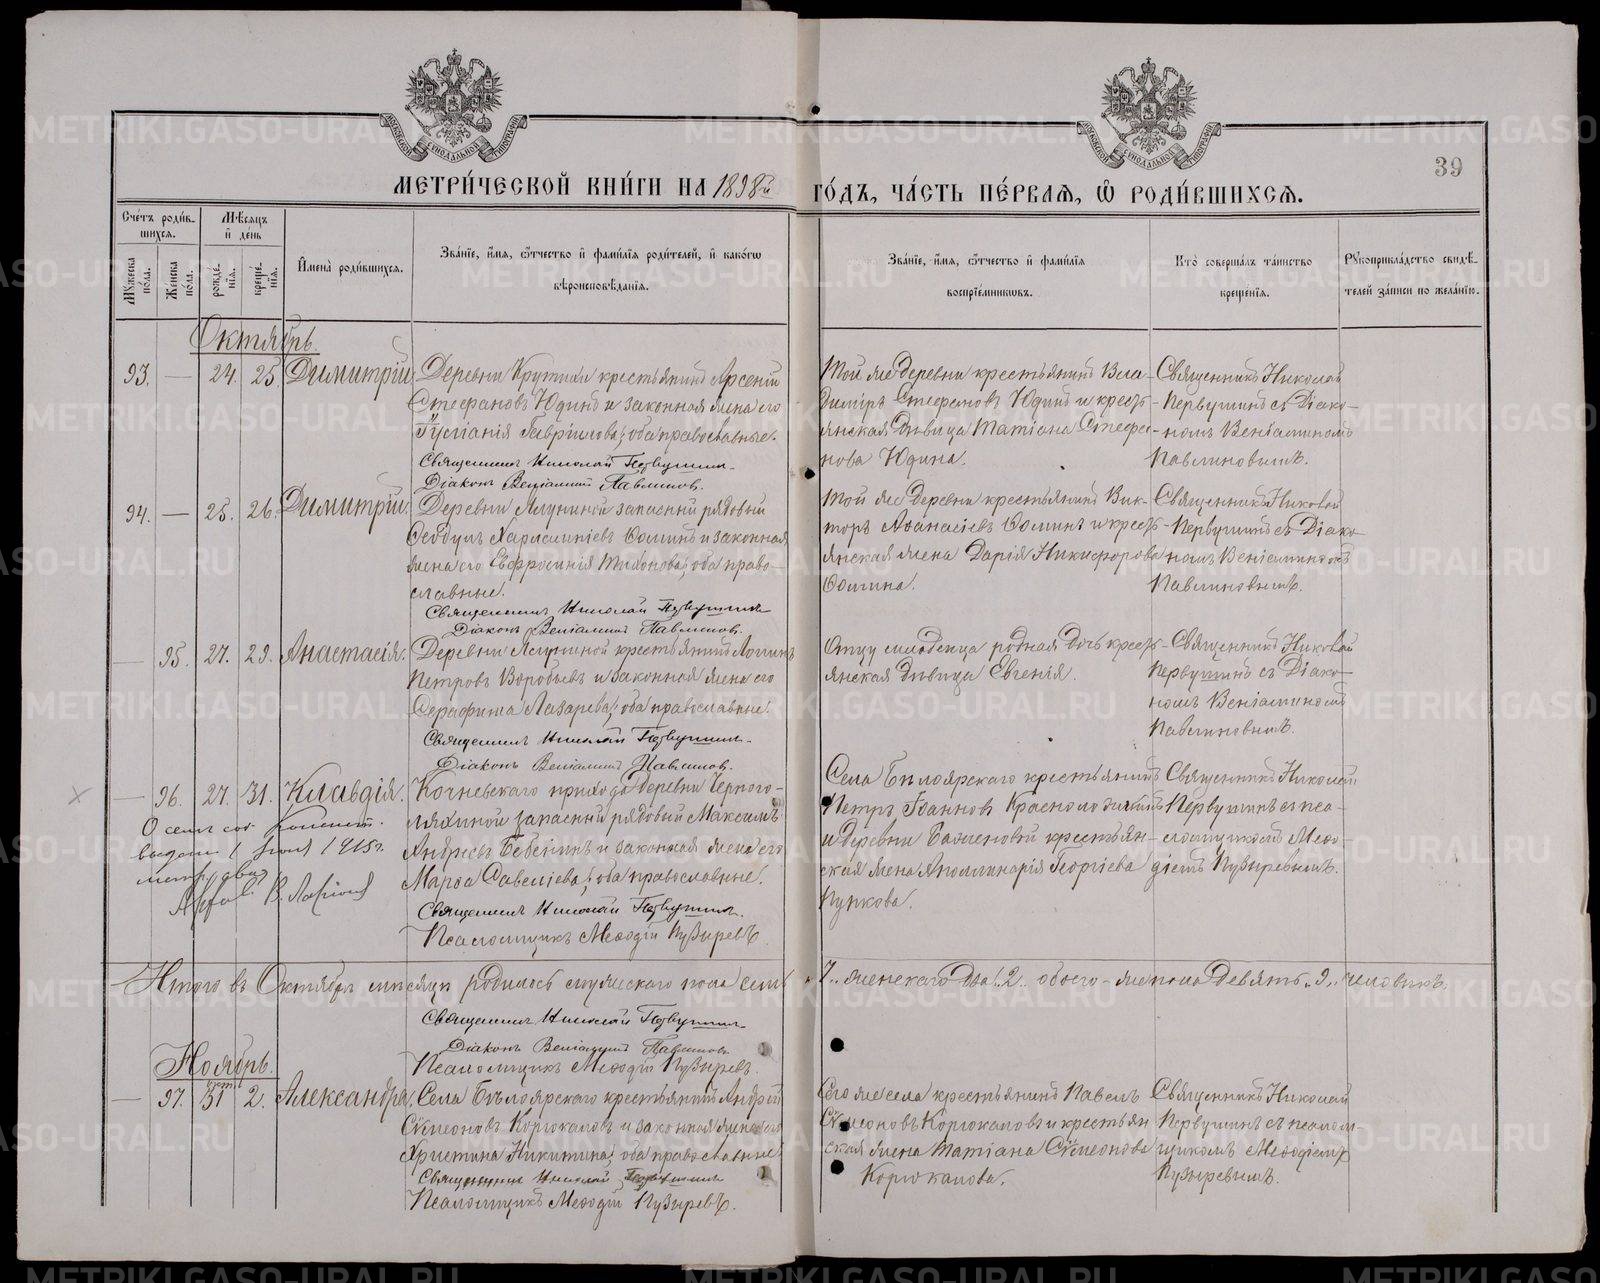 МОСКОВСКОЙ СѴНОДАЛЬНОЙ ТИПОГРАФІИ
МОСКОВСКОЙ СѴНОДАЛЬНОЙ ТИПОГРАФІИ
39
МЕТРИ́ЧЕСКОЙ КНИ́ГИ НА 1898й ГО́ДЪ, ЧА́СТЬ ПЕ́РВАЯ, Ѡ РОДИ́ВШИХСЯ.
Сче́тъ роди́в-
шихся.
Мѣ́сяцъ
и҆ де́нь
Мꙋжеска по́ла.
Же́нска по́ла.
рожде́-нїя.
креще́-нїя.
И҆мена̀ роди́вшихся.
Зва́нїе, и҆́мя, ѻ҆́тчество и҆ фами́лїя роди́телей, и҆ како́гѡ
вѣроисповѣ́данїя.
Зва́нїе, и҆́мя, ѻ҆́тчество и҆ фами́лїя
воспрїе́мникѡвъ.
Кто̀ соверша́лъ та́инство
креще́нїя.
Рꙋкоприкла́дство свидѣ́-
телей за́писи по жела́нїю.
Октябрь.
93. — 24. 25. Димитрій
Деревни Крутихи крестьянинъ Арсеній
Стефановъ Юдинъ и законная жена его
Гавріилова; оба православные.
Священникъ Николай Первушинъ.
Діаконъ Веніаминъ Павлиновъ.
Той же деревни крестьянинъ Вла-
диміръ Стефановъ Юдинъ и кресть-
янская дѣвица Татіана Стефа-
нова Юдина.
Священникъ Николай
Первушинъ съ Діако-
номъ Веніаминомъ
Павлиновымъ.
94. — 25. 26. Димитрій.
Деревни запасный рядовый
Ѳеодулъ Харлампіевъ Ѳоминъ и законная
жена его Евфросинія Тихонова; оба право-
славные.
Священникъ Николай Первушинъ
Діаконъ Веніаминъ Павлиновъ.
Той же деревни крестьянинъ Вик-
торъ Аѳанасіевъ Ѳоминъ и кресть-
янская жена Дарія Никифорова
Ѳомина.
Священникъ Николай
Первушинъ съ Діако-
номъ Веніаминомъ
Павлиновымъ.
— 95. 27. 29. Анастасія.
Деревни крестьянинъ Логинъ
Петровъ Воробьевъ и законная жена его
Серафима Лазарева; оба православные.
Священникъ Николай Первушинъ.
Діаконъ Веніаминъ Павлиновъ.
Отцу младенца родная дочь кресть-
янская дѣвица Евгенія.
Священникъ Николай
Первушинъ съ Діако-
номъ Веніаминомъ
Павлиновымъ.
— 96. 27. 31. Клавдія.
О семъ
выдана 1 1915 г.
Кочневскаго прихода деревни Черного-
запасный рядовый Максимъ
Андреевъ и законная жена его
Марѳа Савеліева; оба православные.
Священникъ Николай Первушинъ.
Псаломщикъ Меѳодій Пузыревъ
Села Бѣлоярскаго крестьянинъ
Петръ Іоанновъ
и деревни Баженовой крестьян-
ская жена Аполлинарія Георгіева
Пупкова.
Священникъ Николай
Первушинъ съ пса-
ломщикомъ Меѳо-
діемъ Пузыревымъ.
Итого въ Октябрѣ мѣсяцѣ родилось мужескаго пола семь 7., женскаго два „2„ обоего-же пола девять „9„ человѣкъ.
Священникъ Николай Первушинъ
Діаконъ Веніаминъ Павлиновъ
Псаломщикъ Меѳодій Пузыревъ.
Ноябрь.
— 97. окт. 31 2. Александра.
Села Бѣлоярскаго крестьянинъ Андрей
Сѵмеоновъ Корюкаловъ и законная жена его
Христина Никитина; оба православные
Священникъ Николай Первушинъ
Псаломщикъ Меѳодій Пузыревъ.
Того же села крестьянинъ Павелъ
Сѵмеоновъ Корюкаловъ и крестьян-
ская жена Татіана Сѵмеонова
Корюкалова.
Священникъ Николай
Первушинъ съ псалом-
щикомъ Меѳодіемъ
Пузыревымъ.
METRIKI.GASO-URAL.RU